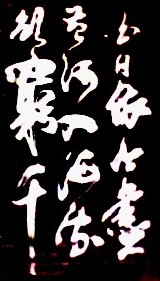 白日依山盡
黄河入海流
欲窮千